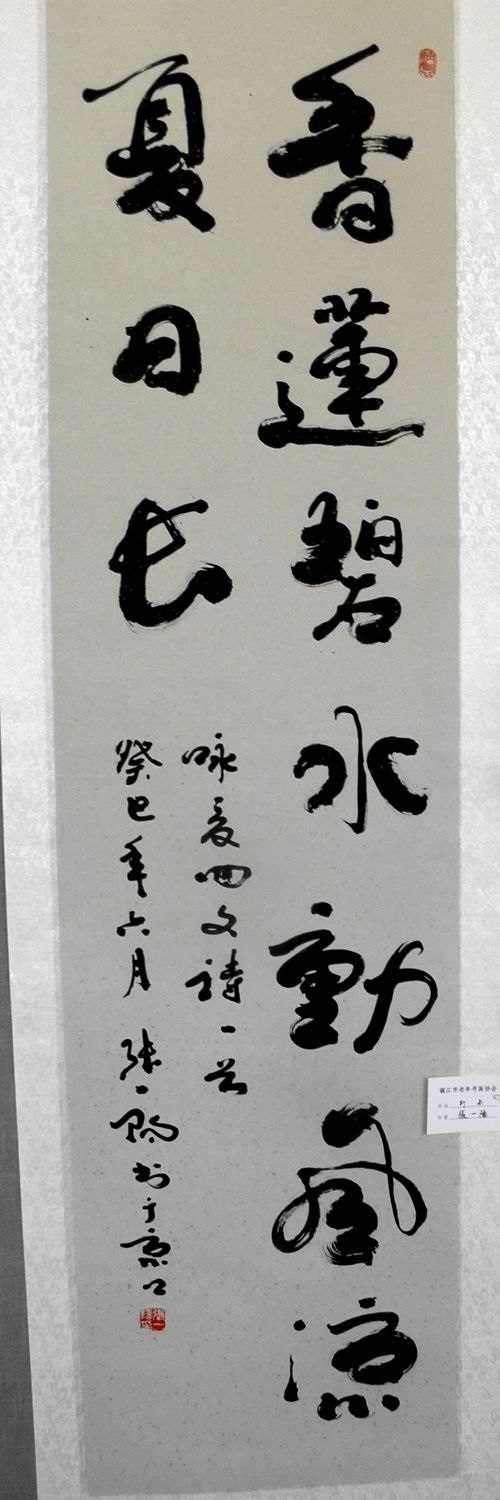 香蓮碧水動風涼
夏日長
咏夏回文詩一首
癸巳年六月 張一陽书于京口
镇江市老年书画协会
行书
張一陽